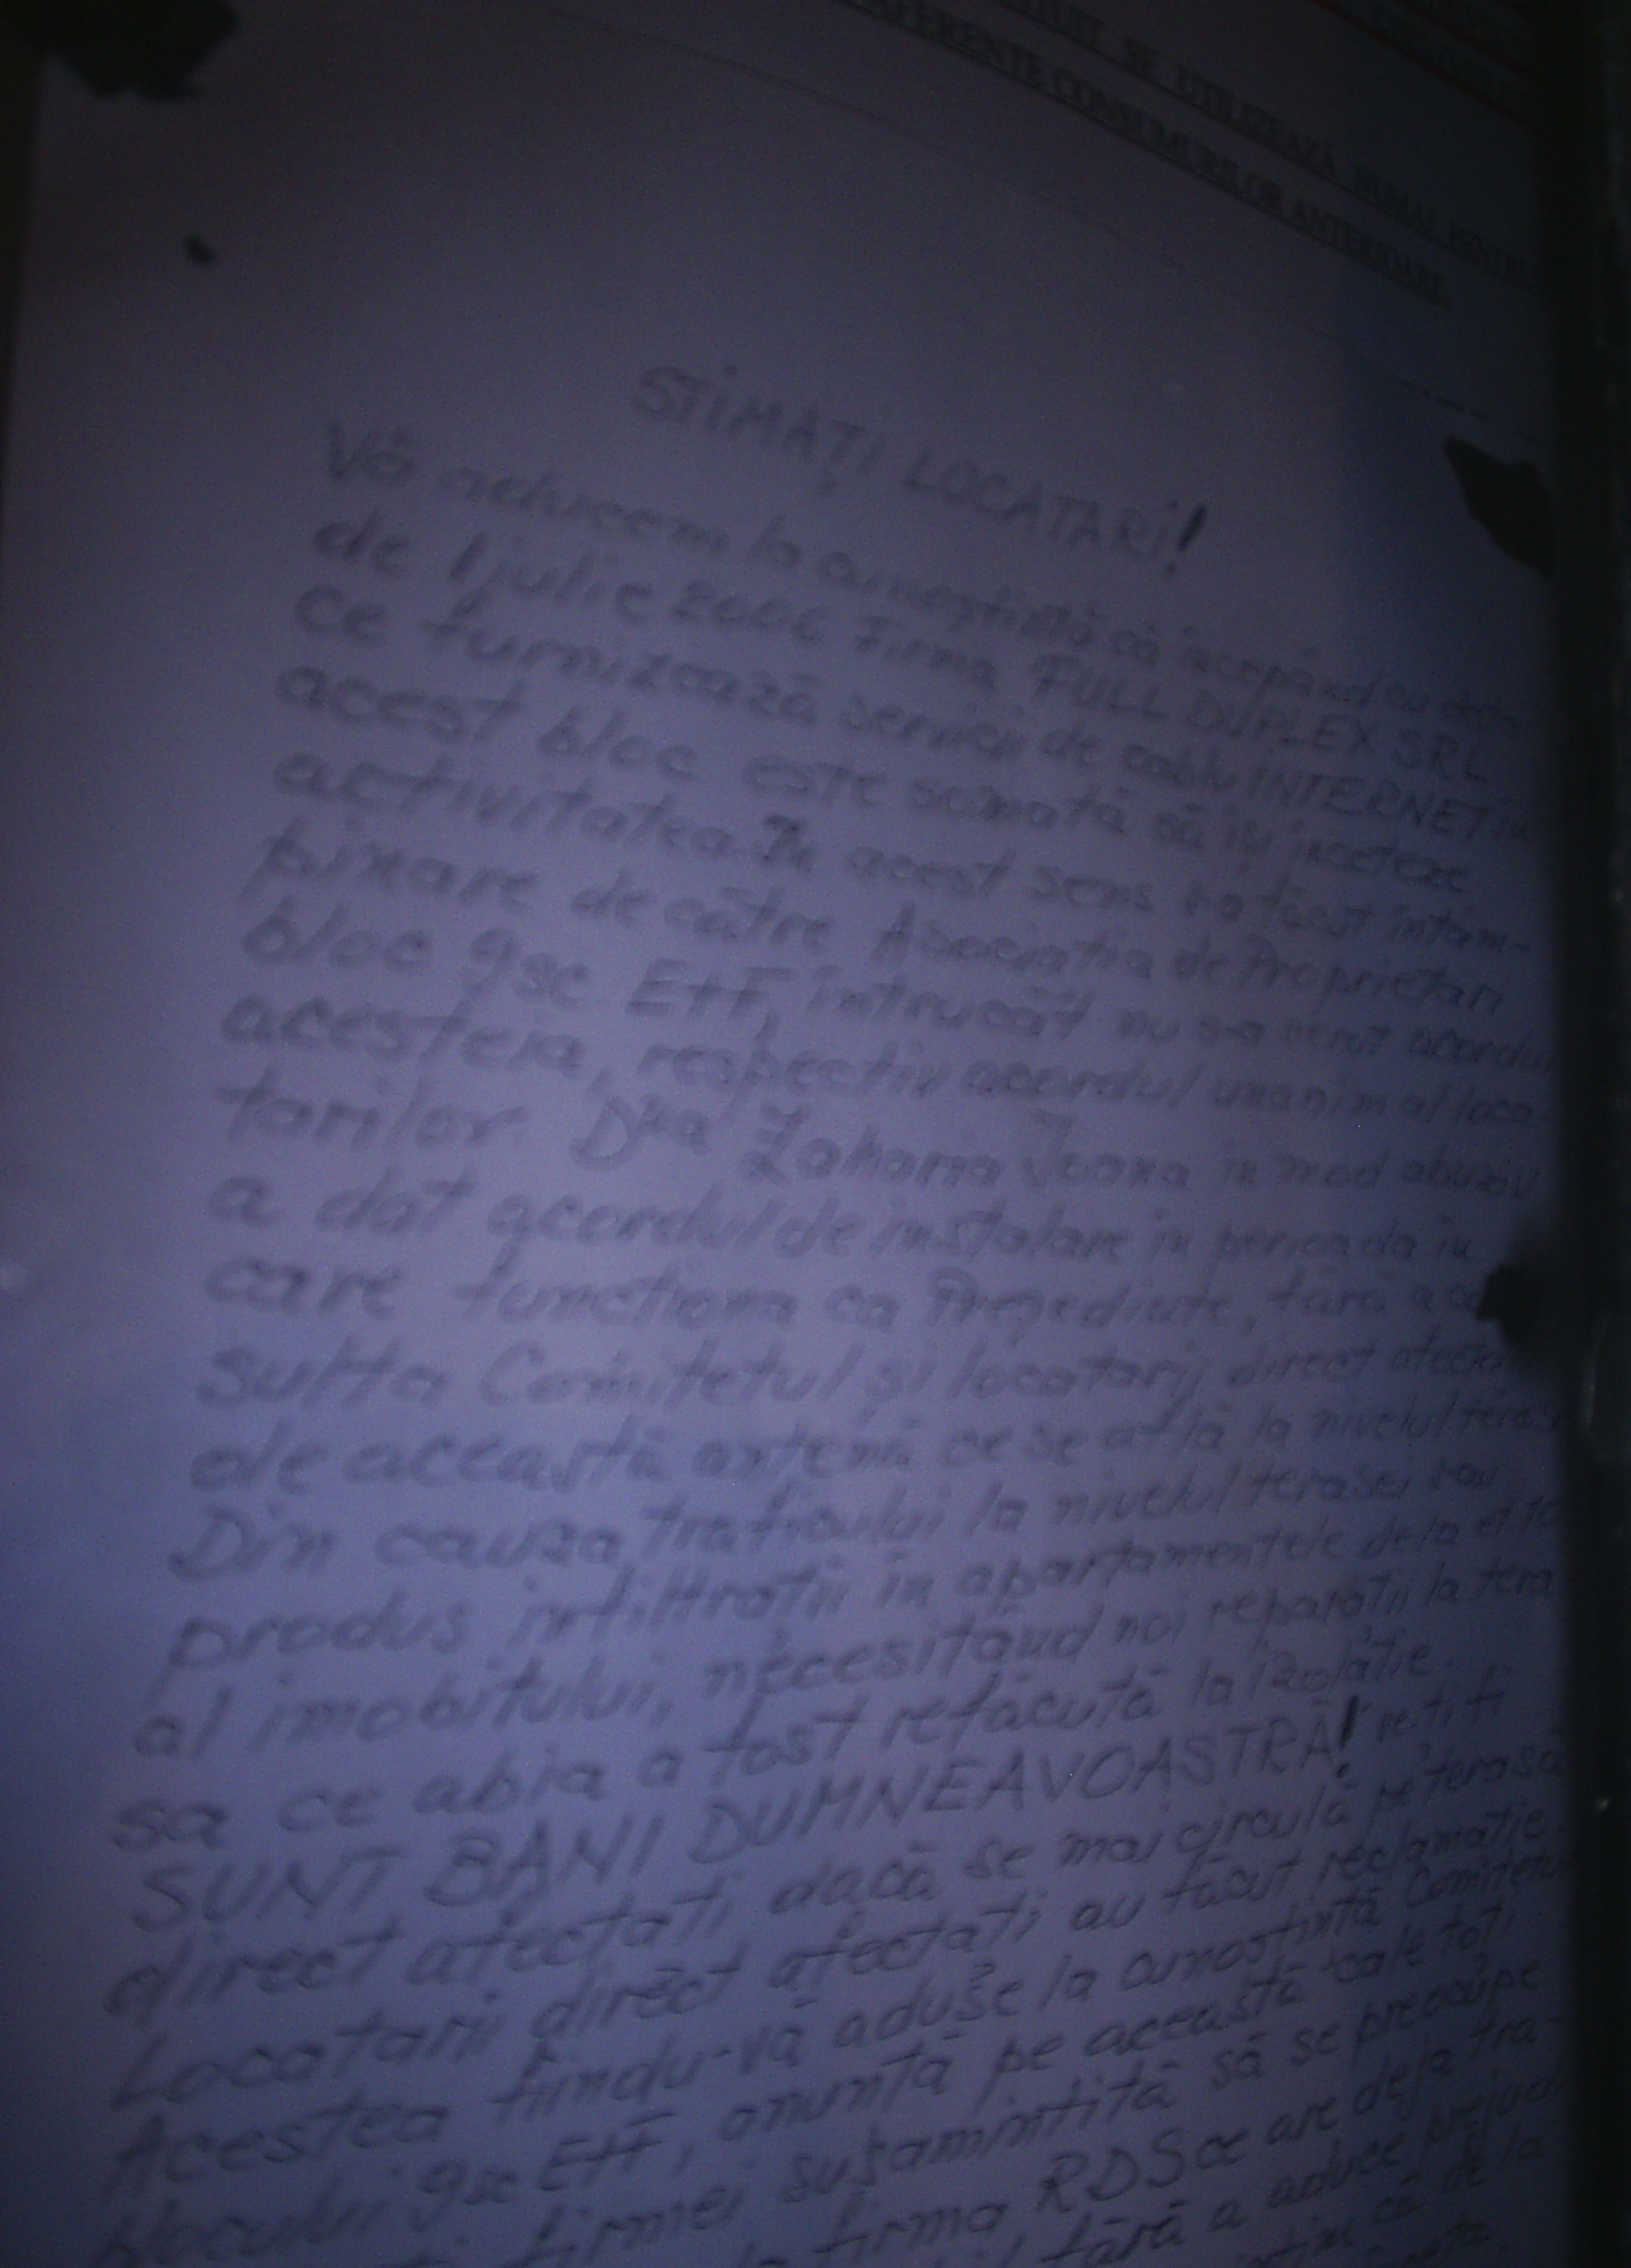 SE UTILIZEAZĂ NUMAI PENTRU
AFERENTE CONSUMURILOR ANTERIOARE
STIMAȚI LOCATARI!
Vă aducem la cunoștință că începând cu data
de 1 iulie 2006 firma FULL DUPLEX SRL
ce furnizează servicii de cablu INTERNET în
acest bloc este somată să își înceteze
activitatea. În acest sens s-a făcut întâm-
pinare de către Asociația de Proprietari
bloc 9 sc E+F, întrucât nu s-a cerut acordul
acesteia, respectiv acordul unanim al loca-
tarilor. Dna Zaharia Ioana în mod abuziv
a dat acordul de instalare în perioada în
care funcționa ca Președinte, fără a co
sulta Comitetul și locatarii direct afectați
de această antenă ce se află la nivelul terasei
Din cauza traficului la nivelul terasei s-au
produs infiltrații în apartamentele de la et 10
al imobilului, necesitând noi reparații la tera
sa ce abia a fost refăcută la izolație.
SUNT BANI DUMNEAVOASTRĂ! veți fi
direct afectați dacă se mai circulă pe terasă
Locatarii direct afectați au făcut reclamație.
Acestea fiindu-vă aduse la cunoștință Comitetul
blocului 9 sc E+F, anunță pe această cale toți
firmei sus amintită să se preocupe
firma RDS ce are deja tra-
fără a aduce prejudi
că de la